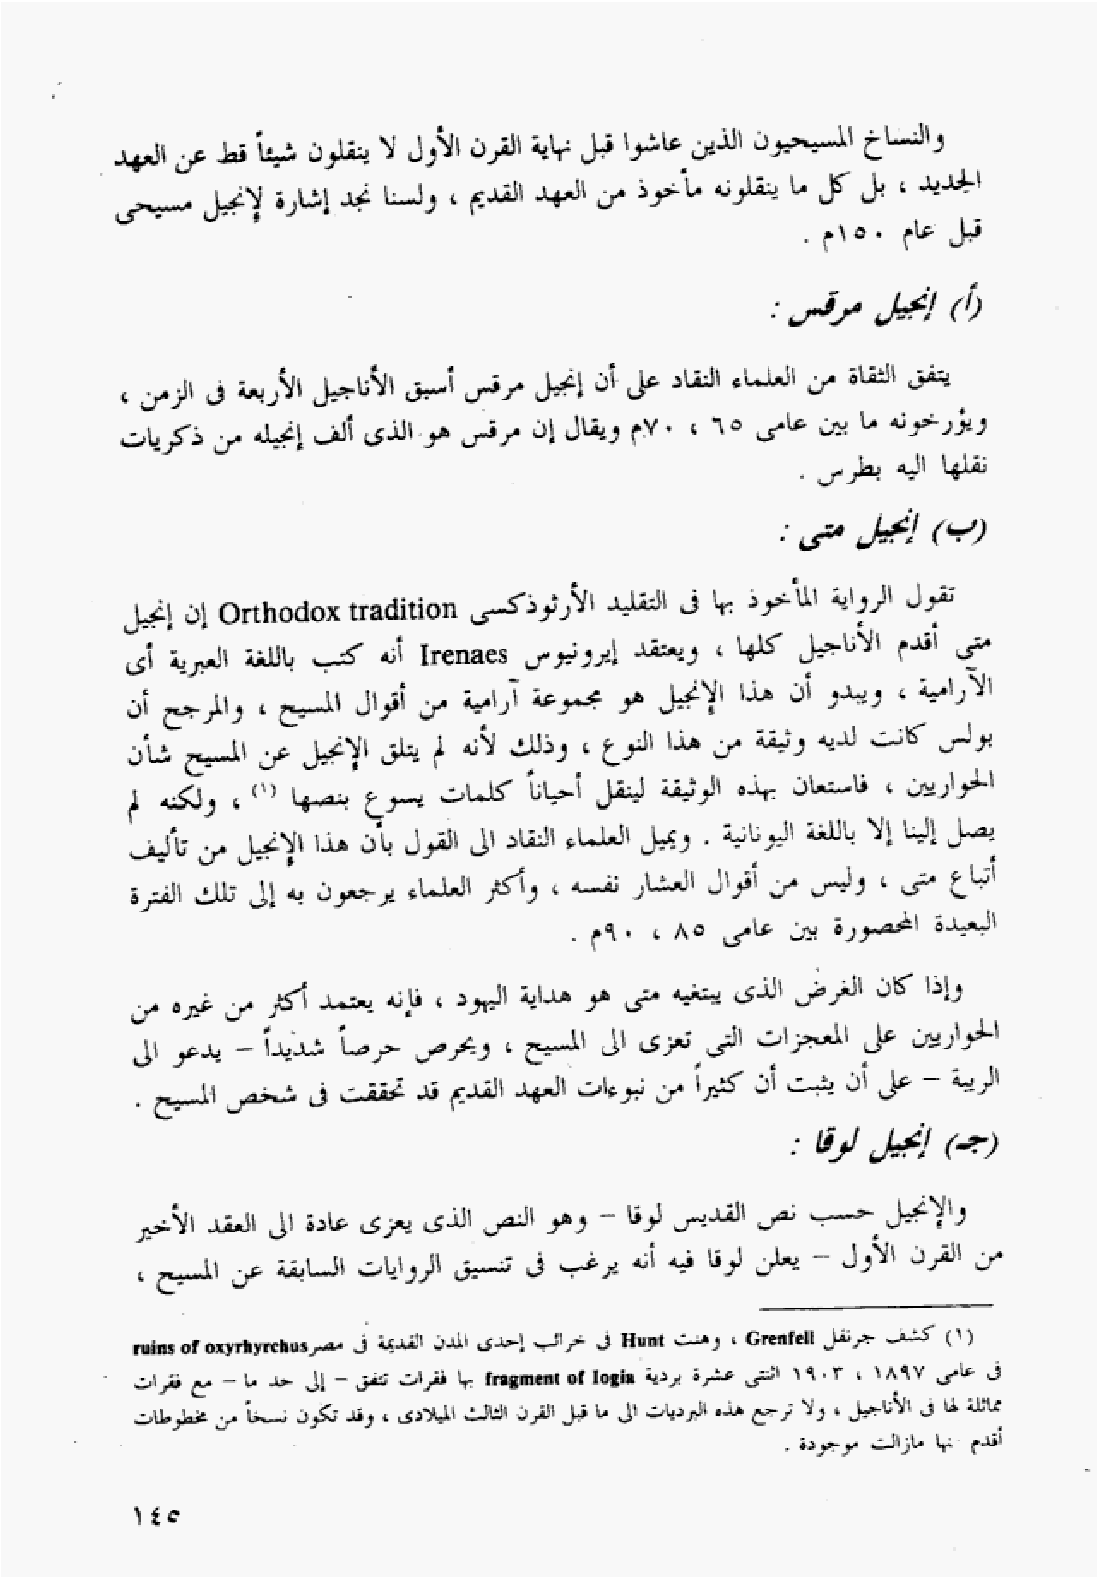 والنساخ المسيحيون الذين عاشوا قبل نهاية القرن الأول لا ينقلون شيئاً قط عن العهد
الجديد ، بل كل ما ينقلونه مأخوذ من العهد القديم ، ولسنا نجد إشارة لإنجيل مسيحى
قبل عام ١٥٠م .
(أ) إنجيل مرقس :
يتفق الثقاة من العلماء النقاد على أن إنجيل مرقس أسبق الأناجيل الأربعة فى الزمن ،
ويؤرخونه ما بين عامى ٦٥ ، ٧٠م ويقال إن مرقس هو الذى ألف إنجيله من ذكريات
نقلها اليه بطرس .
(ب) إنجيل متى :
تقول الرواية المأخوذ بها فى التقليد الأرثوذكسى Orthodox tradition إن إنجيل
متى أقدم الأناجيل كلها ، ويعتقد إيرونيوس Irenaes أنه كتب باللغة العبرية أى
الآرامية ، ويبدو أن هذا الإنجيل هو مجموعة آرامية من أقوال المسيح ، والمرجح أن
بولس كانت لديه وثيقة من هذا النوع ، وذلك لأنه لم يتلق الإنجيل عن المسيح شأن
الحواريين ، فاستعان بهذه الوثيقة لينقل أحياناً كلمات يسوع بنصها (١) ، ولكنه لم
يصل إلينا إلا باللغة اليونانية . ويميل العلماء النقاد الى القول بأن هذا الإنجيل من تأليف
أتباع متى ، وليس من أقوال العشار نفسه ، وأكثر العلماء يرجعون به إلى تلك الفترة
البعيدة المحصورة بين عامى ٨٥ ، ٩٠م .
وإذا كان الغرض الذى يبتغيه متى هو هداية اليهود ، فإنه يعتمد أكثر من غيره من
الحواريين على المعجزات التى تعزى الى المسيح ، ويحرص حرصاً شديداً – يدعو الى
الريبة – على أن يثبت أن كثيراً من نبوءات العهد القديم قد تحققت فى شخص المسيح .
(جـ) إنجيل لوقا :
والإنجيل حسب نص القديس لوقا – وهو النص الذى يعزى عادة الى العقد الأخير
من القرن الأول – يعلن لوقا فيه أنه يرغب فى تنسيق الروايات السابقة عن المسيح ،
(١) كشف جرنفل Grenfell ، وهنت Hunt فى خرائب إحدى المدن القديمة فى مصر ruins of oxyrhyrchus
فى عامى ١٨٩٧ ، ١٩٠٣ اثنتى عشرة بردية fragment of logia بها فقرات تتفق – إلى حد ما – مع فقرات
مماثلة لها فى الأناجيل ، ولا ترجع هذه البرديات الى ما قبل القرن الثالث الميلادى ، وقد تكون نسخاً من مخطوطات
أقدم نها مازالت موجودة .
١٤٥